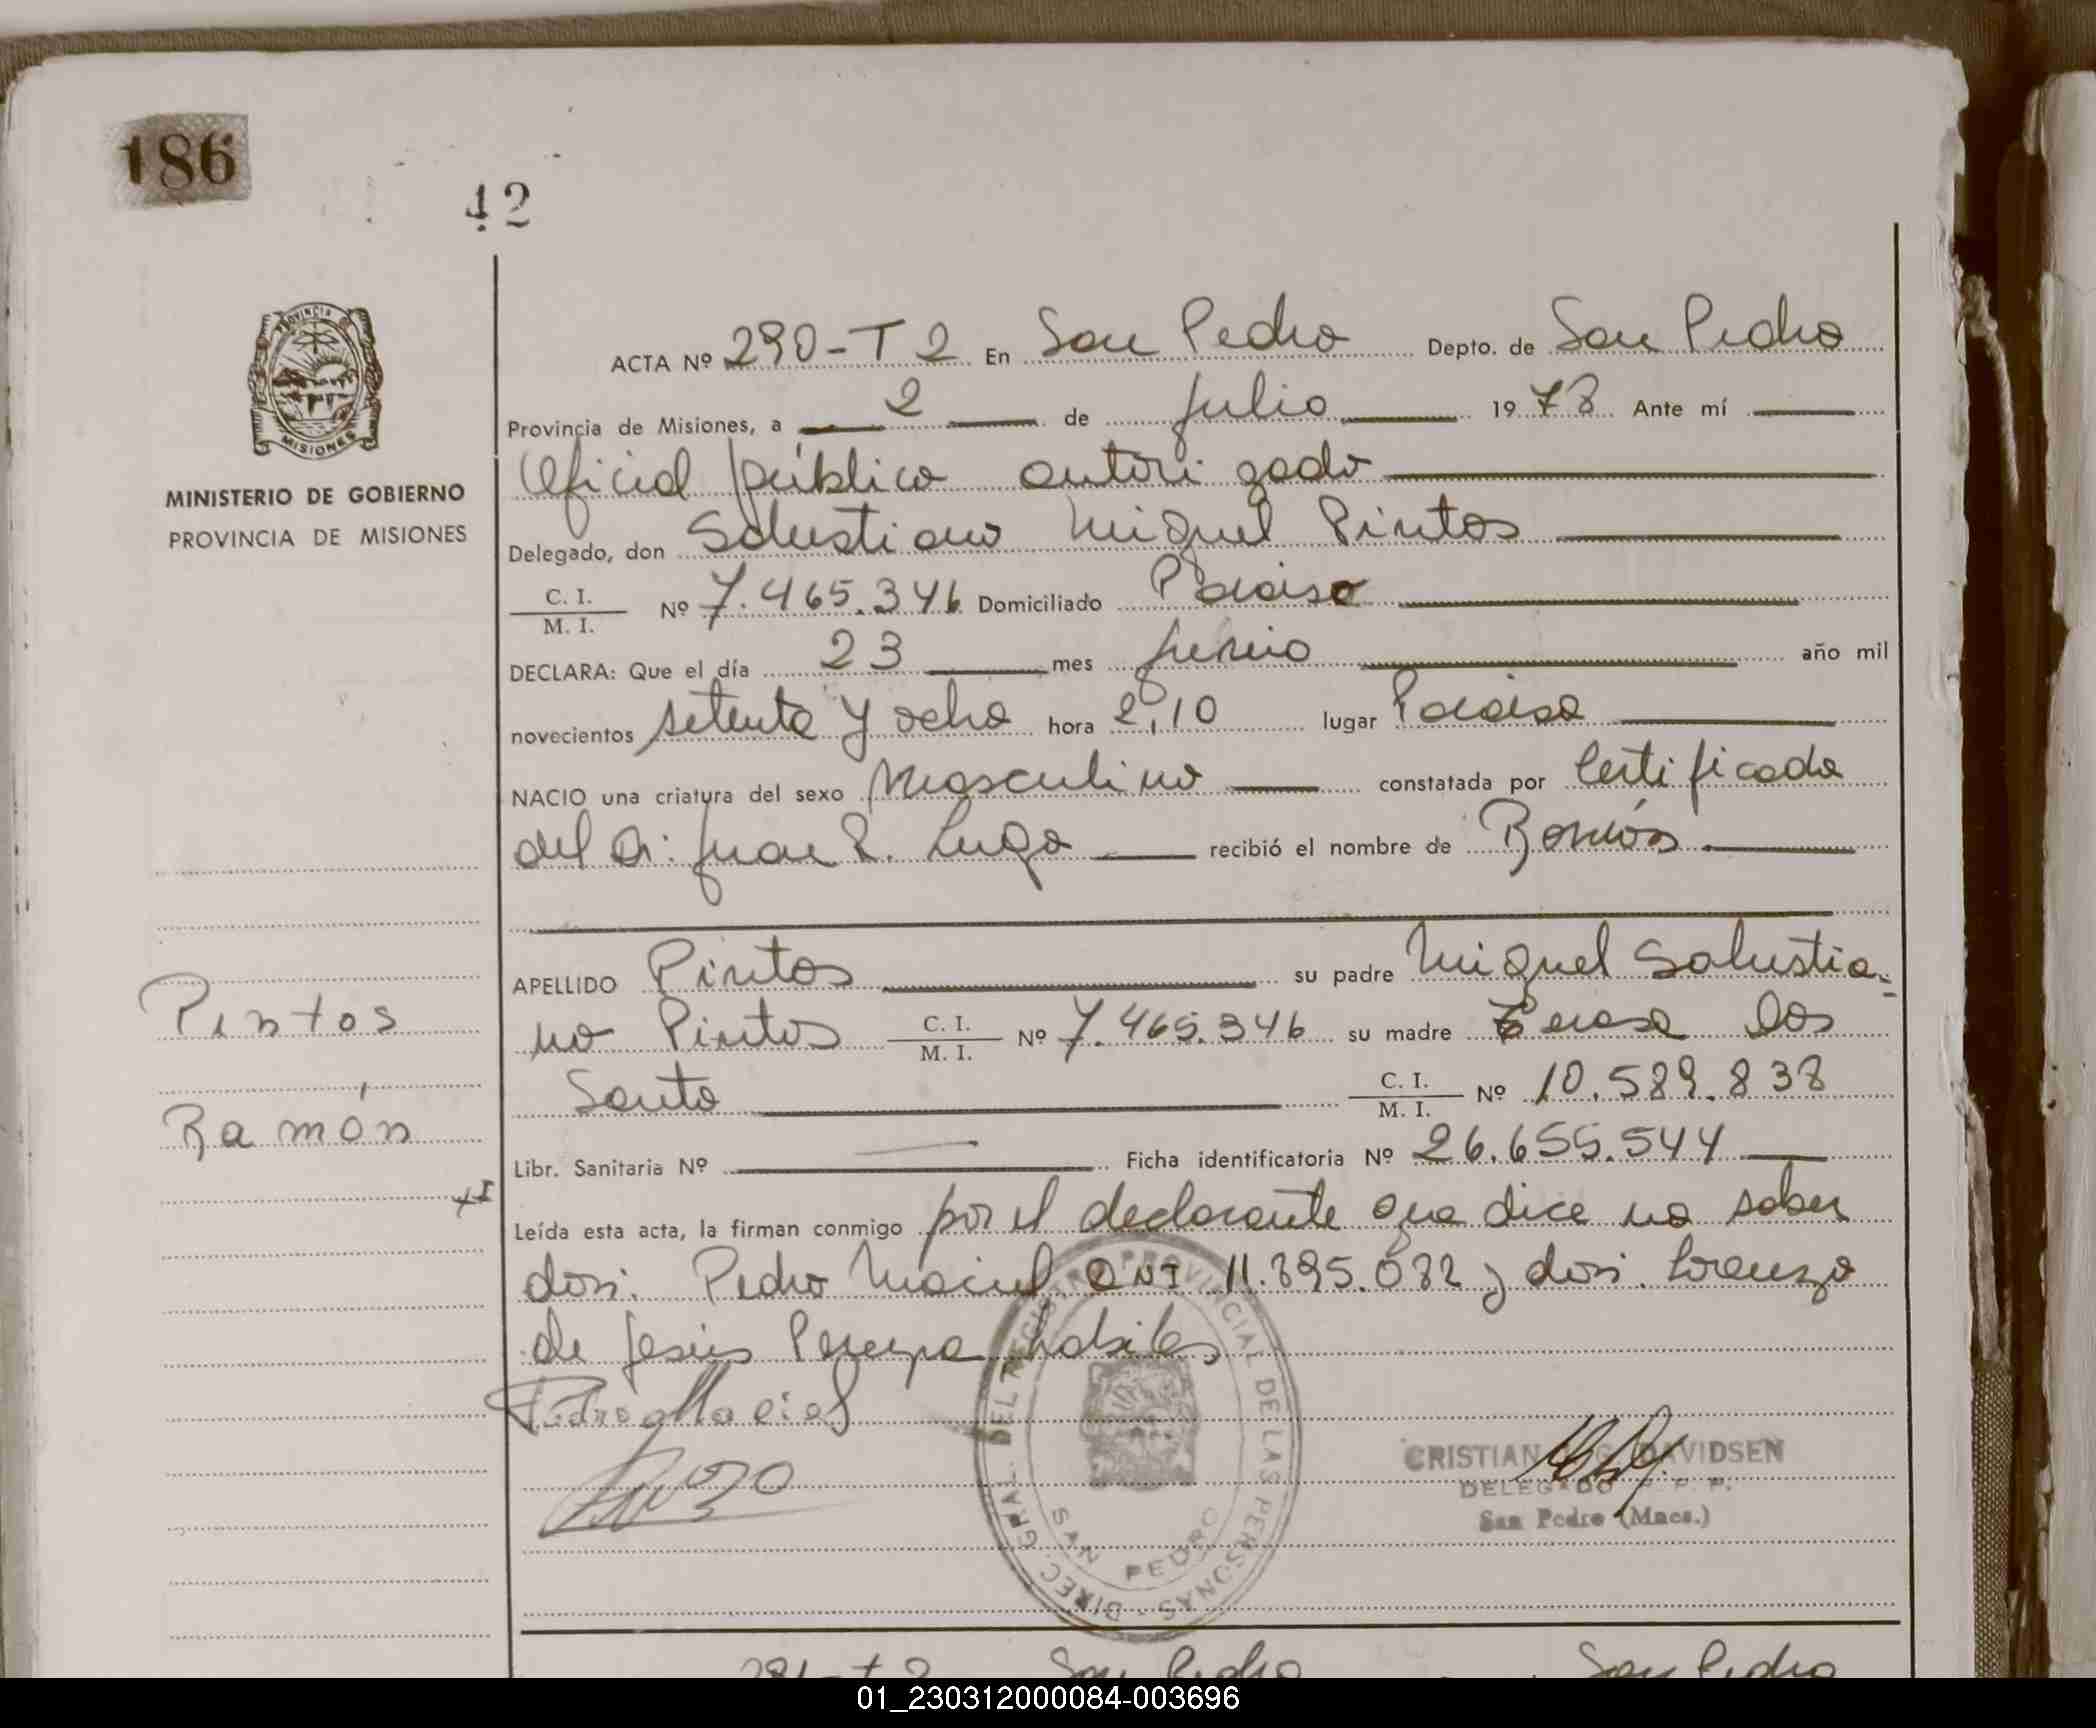 186
42
PROVINCIA
MISIONES
MINISTERIO DE GOBIERNO
PROVINCIA DE MISIONES
ACTA Nº 290-T 2 En San Pedro Depto. de San Pedro
Provincia de Misiones, a 2 de Julio 1978 Ante mí
Oficial público autorizado
Delegado, don Salustiano Miguel Pintos
C. I. / M. I. Nº 7.465.346 Domiciliado Paraiso
DECLARA: Que el día 23 mes Junio año mil
novecientos setenta y ocho hora 2,10 lugar Paraiso
NACIO una criatura del sexo Masculino constatada por Certificado
del Dr. Juan R. Lugo recibió el nombre de Ramón
APELLIDO Pintos su padre Miguel Salustia-
no Pintos C. I. / M. I. Nº 7.465.346 su madre Teresa Dos
Santo C. I. / M. I. Nº 10.589.838
Libr. Sanitaria Nº Ficha identificatoria Nº 26.655.544
Leída esta acta, la firman conmigo por el declarante que dice no saber
don. Pedro Maciel DNI 11.395.032 y don. Lorenzo
de Jesús Pereyra habiles
Pintos
Ramón
Pedro Maciel
DIREC. GRAL. DEL REGISTRO PROVINCIAL DE LAS PERSONAS
SAN PEDRO
CRISTIAN G. DAVIDSEN
DELEGADO R. P. P.
San Pedro (Mnes.)
291-T 2 San Pedro San Pedro
01_230312000084-003696